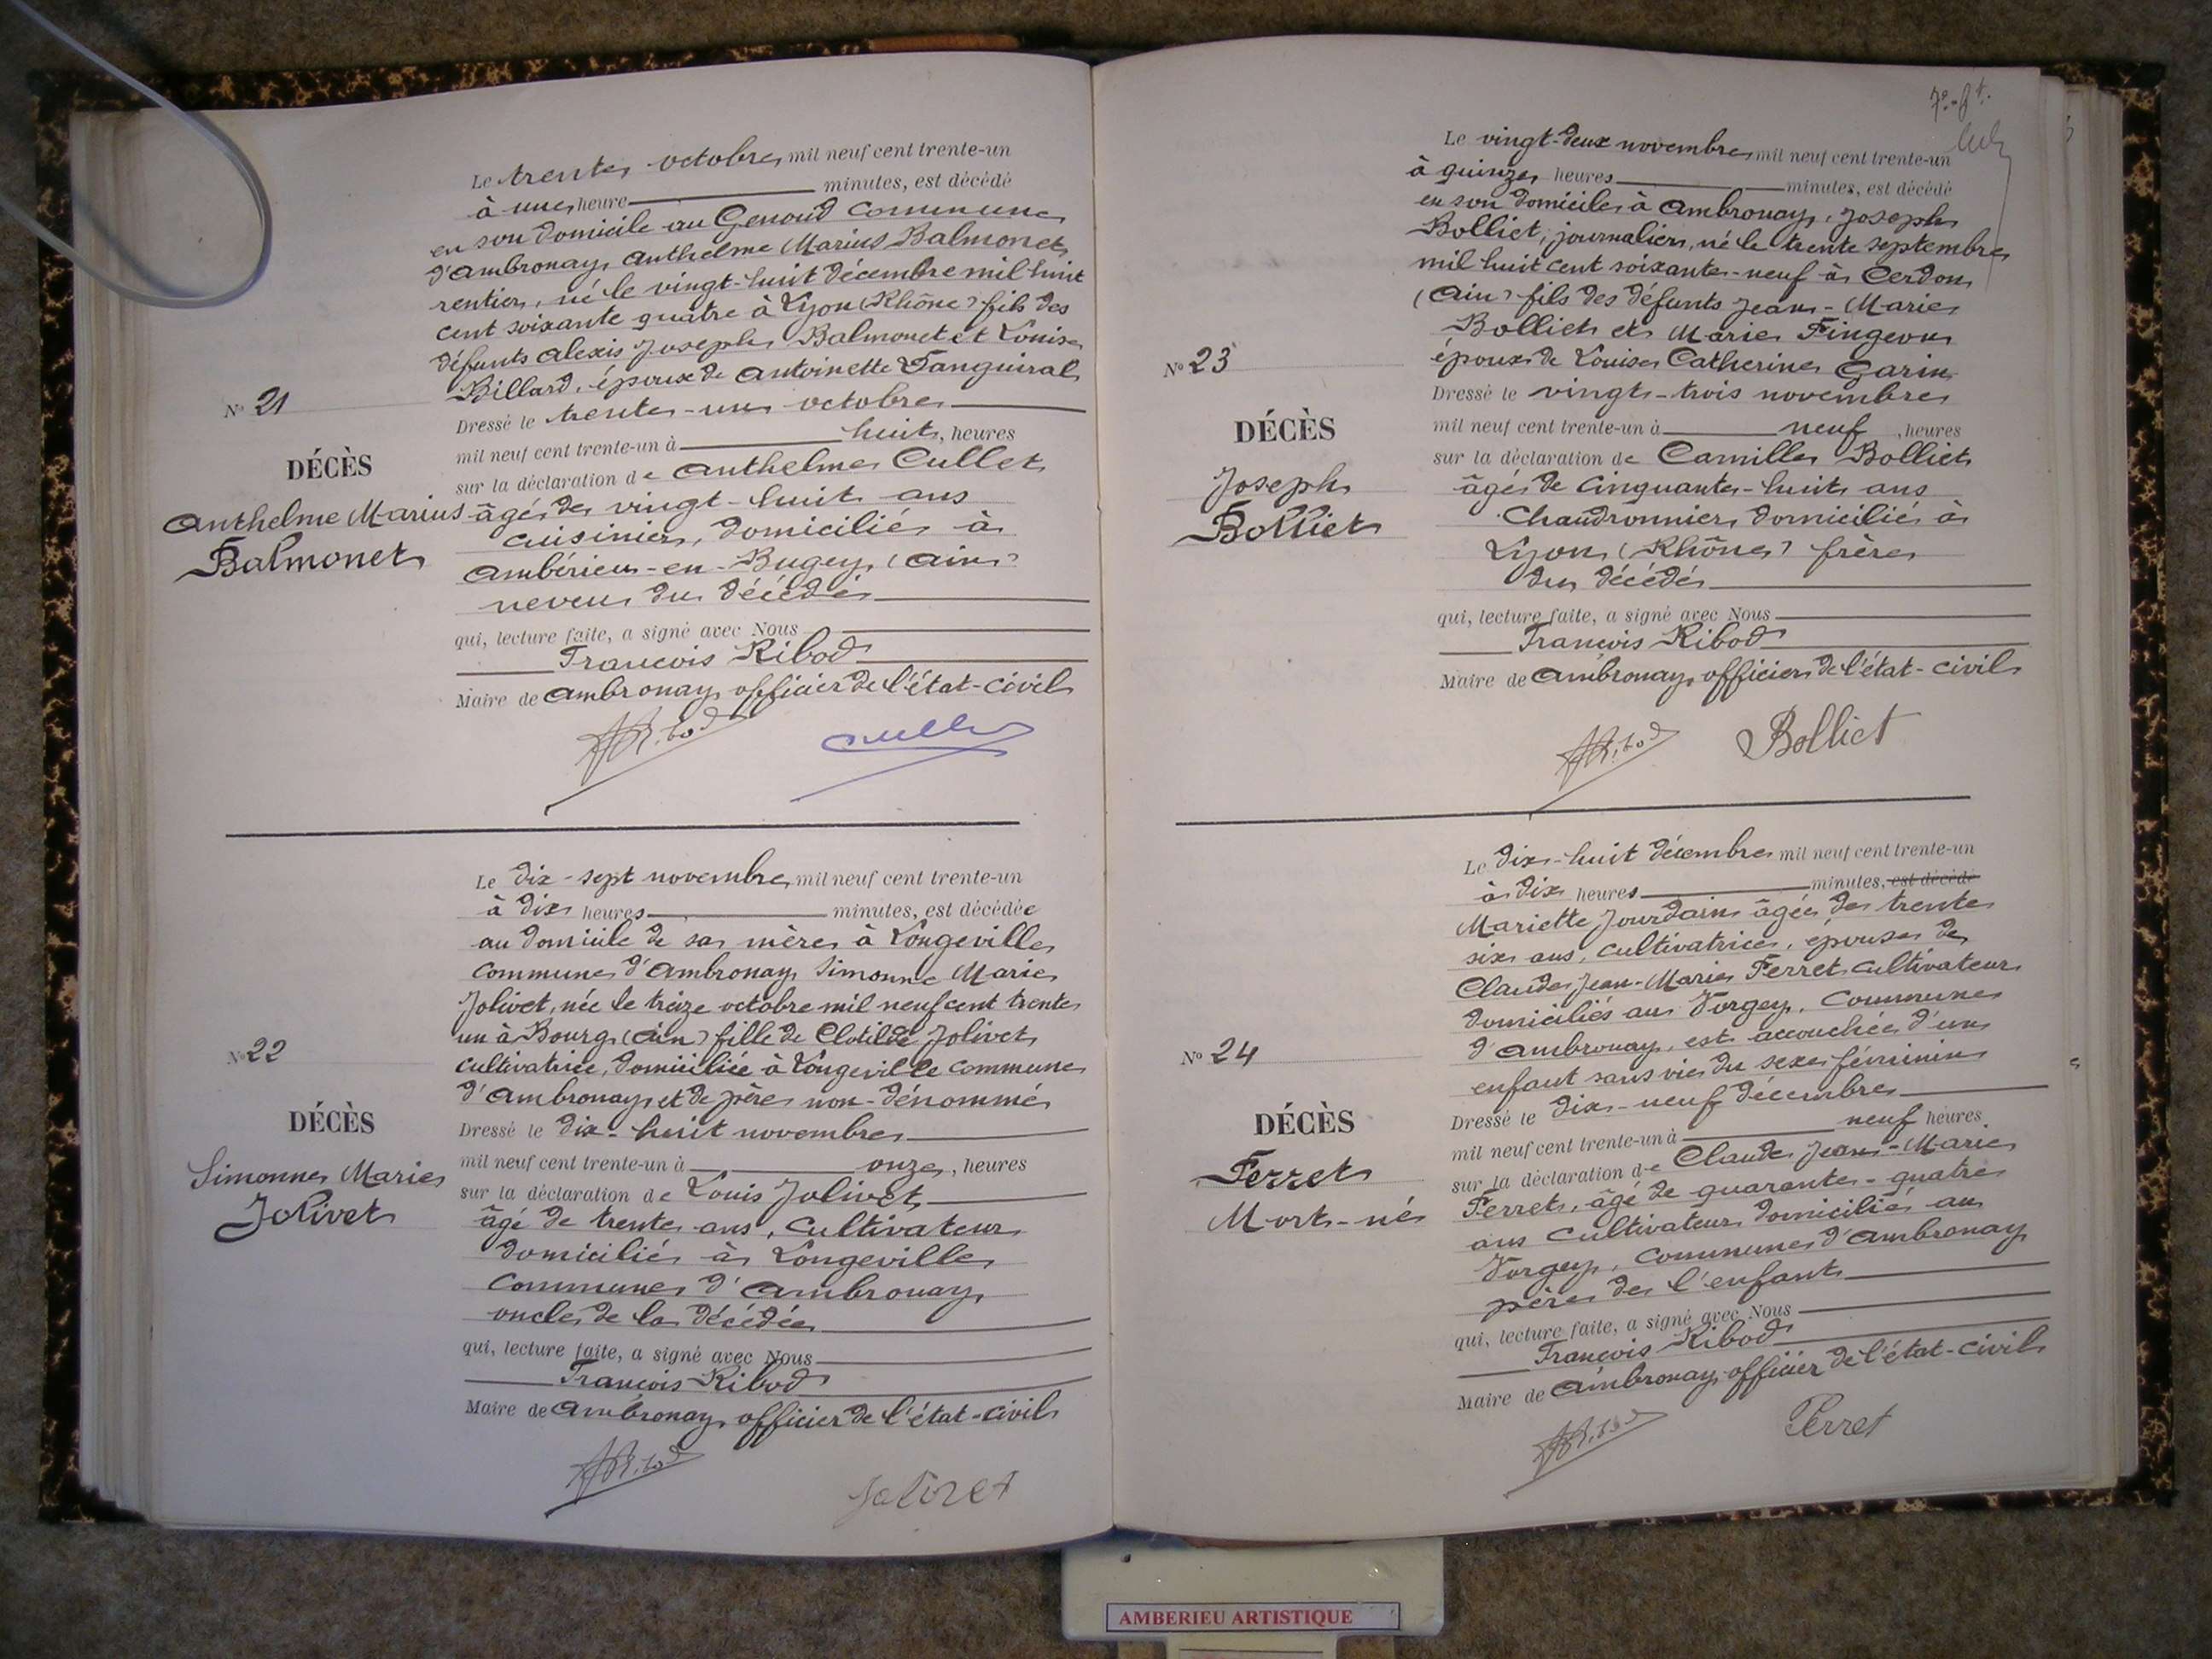 Le trente octobre mil neuf cent trente-un
à une heure minutes, est décédé
en son domicile au Genoud commune
d'Ambronay, Anthelme Marius Balmonet,
rentier, né le vingt-huit décembre mil huit
cent soixante quatre à Lyon (Rhône) fils des
défunts Alexis Joseph Balmonet et Louise
Billard, époux de Antoinette Tanguiral
Nº 21
Dressé le trente-un octobre
mil neuf cent trente-un à huit, heures
DÉCÈS
sur la déclaration de Anthelme Cullet
Anthelme Marius
Balmonet
âgé de vingt-huit ans
cuisinier, domicilié à
Ambérieu-en-Bugey (Ain)
neveu du décédé
qui, lecture faite, a signé avec Nous
François Ribod
Maire de Ambronay, officier de l'état-civil
Ribod
Le dix-sept novembre mil neuf cent trente-un
à dix heures minutes, est décédée
au domicile de sa mère à Longeville
commune d'Ambronay Simonne Marie
Jolivet, née le treize octobre mil neuf cent trente
un à Bourg (Ain) fille de Clotilde Jolivet,
Nº 22
cultivatrice, domiciliée à Longeville commune
d'Ambronay, et de père non-dénommé
DÉCÈS
Dressé le dix-huit novembre
mil neuf cent trente-un à onze, heures
Simonne Marie
Jolivet
sur la déclaration de Louis Jolivet
âgé de trente ans, cultivateur
domicilié à Longeville
commune d'Ambronay,
oncle de la décédée
qui, lecture faite, a signé avec Nous
François Ribod
Maire de Ambronay, officier de l'état-civil
Ribod
Jolivet
Le vingt-deux novembre mil neuf cent trente-un
à quinze heures minutes, est décédé
en son domicile à Ambronay, Joseph
Bolliet, journalier, né le trente septembre
mil huit cent soixante-neuf à Cerdon
(Ain) fils des défunts Jean-Marie
Bolliet et Marie Fingeon
Nº 23
époux de Louise Catherine Garin
Dressé le vingt-trois novembre
DÉCÈS
mil neuf cent trente-un à neuf, heures
sur la déclaration de Camille Bolliet
Joseph
Bolliet
âgé de cinquante-huit ans
Chaudronnier domicilié à
Lyon (Rhône) frère
du décédé
qui, lecture faite, a signé avec Nous
François Ribod
Maire de Ambronay, officier de l'état-civil
Ribod
Bolliet
Le dix-huit décembre mil neuf cent trente-un
à dix heures minutes, est décédé
Mariette Jourdain âgée de trente
six ans, cultivatrice, épouse de
Claude Jean-Marie Ferret cultivateur
domiciliés au Vorgey, Commune
d'Ambronay, est accouchée d'un
enfant sans vie du sexe féminin
Nº 24
Dressé le dix-neuf décembre
DÉCÈS
mil neuf cent trente-un à neuf heures
sur la déclaration de Claude Jean-Marie
Ferret
Mort-né
Ferret, âgé de quarante-quatre
ans cultivateur domicilié au
Vorgey, Commune d'Ambronay
père de l'enfant
qui, lecture faite, a signé avec Nous
François Ribod
Maire de Ambronay, officier de l'état-civil
Ribod
Ferret
AMBERIEU ARTISTIQUE